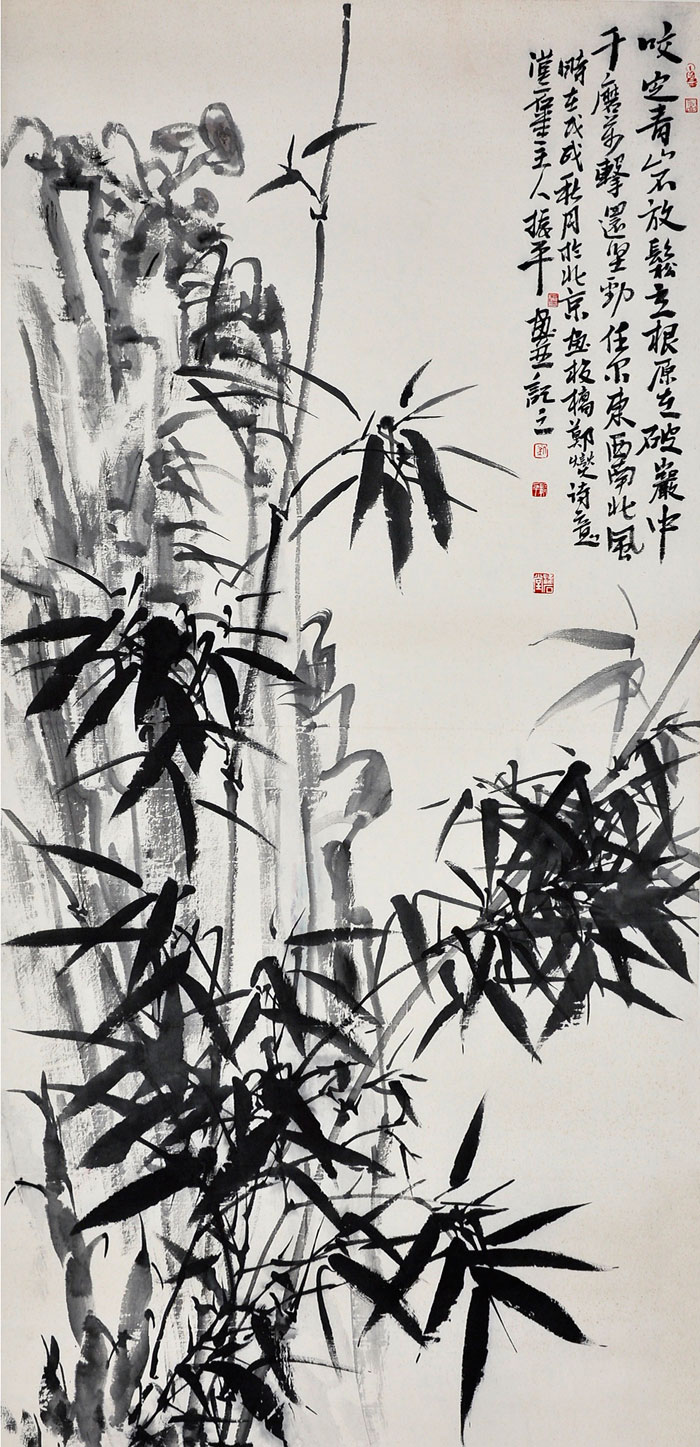 咬定青山不放鬆立根原在破巖中
千磨萬擊還坚勁任尔東西南北風
時在戊戌秋月於北京畫板橋鄭燮诗意
主人振平畫並記之